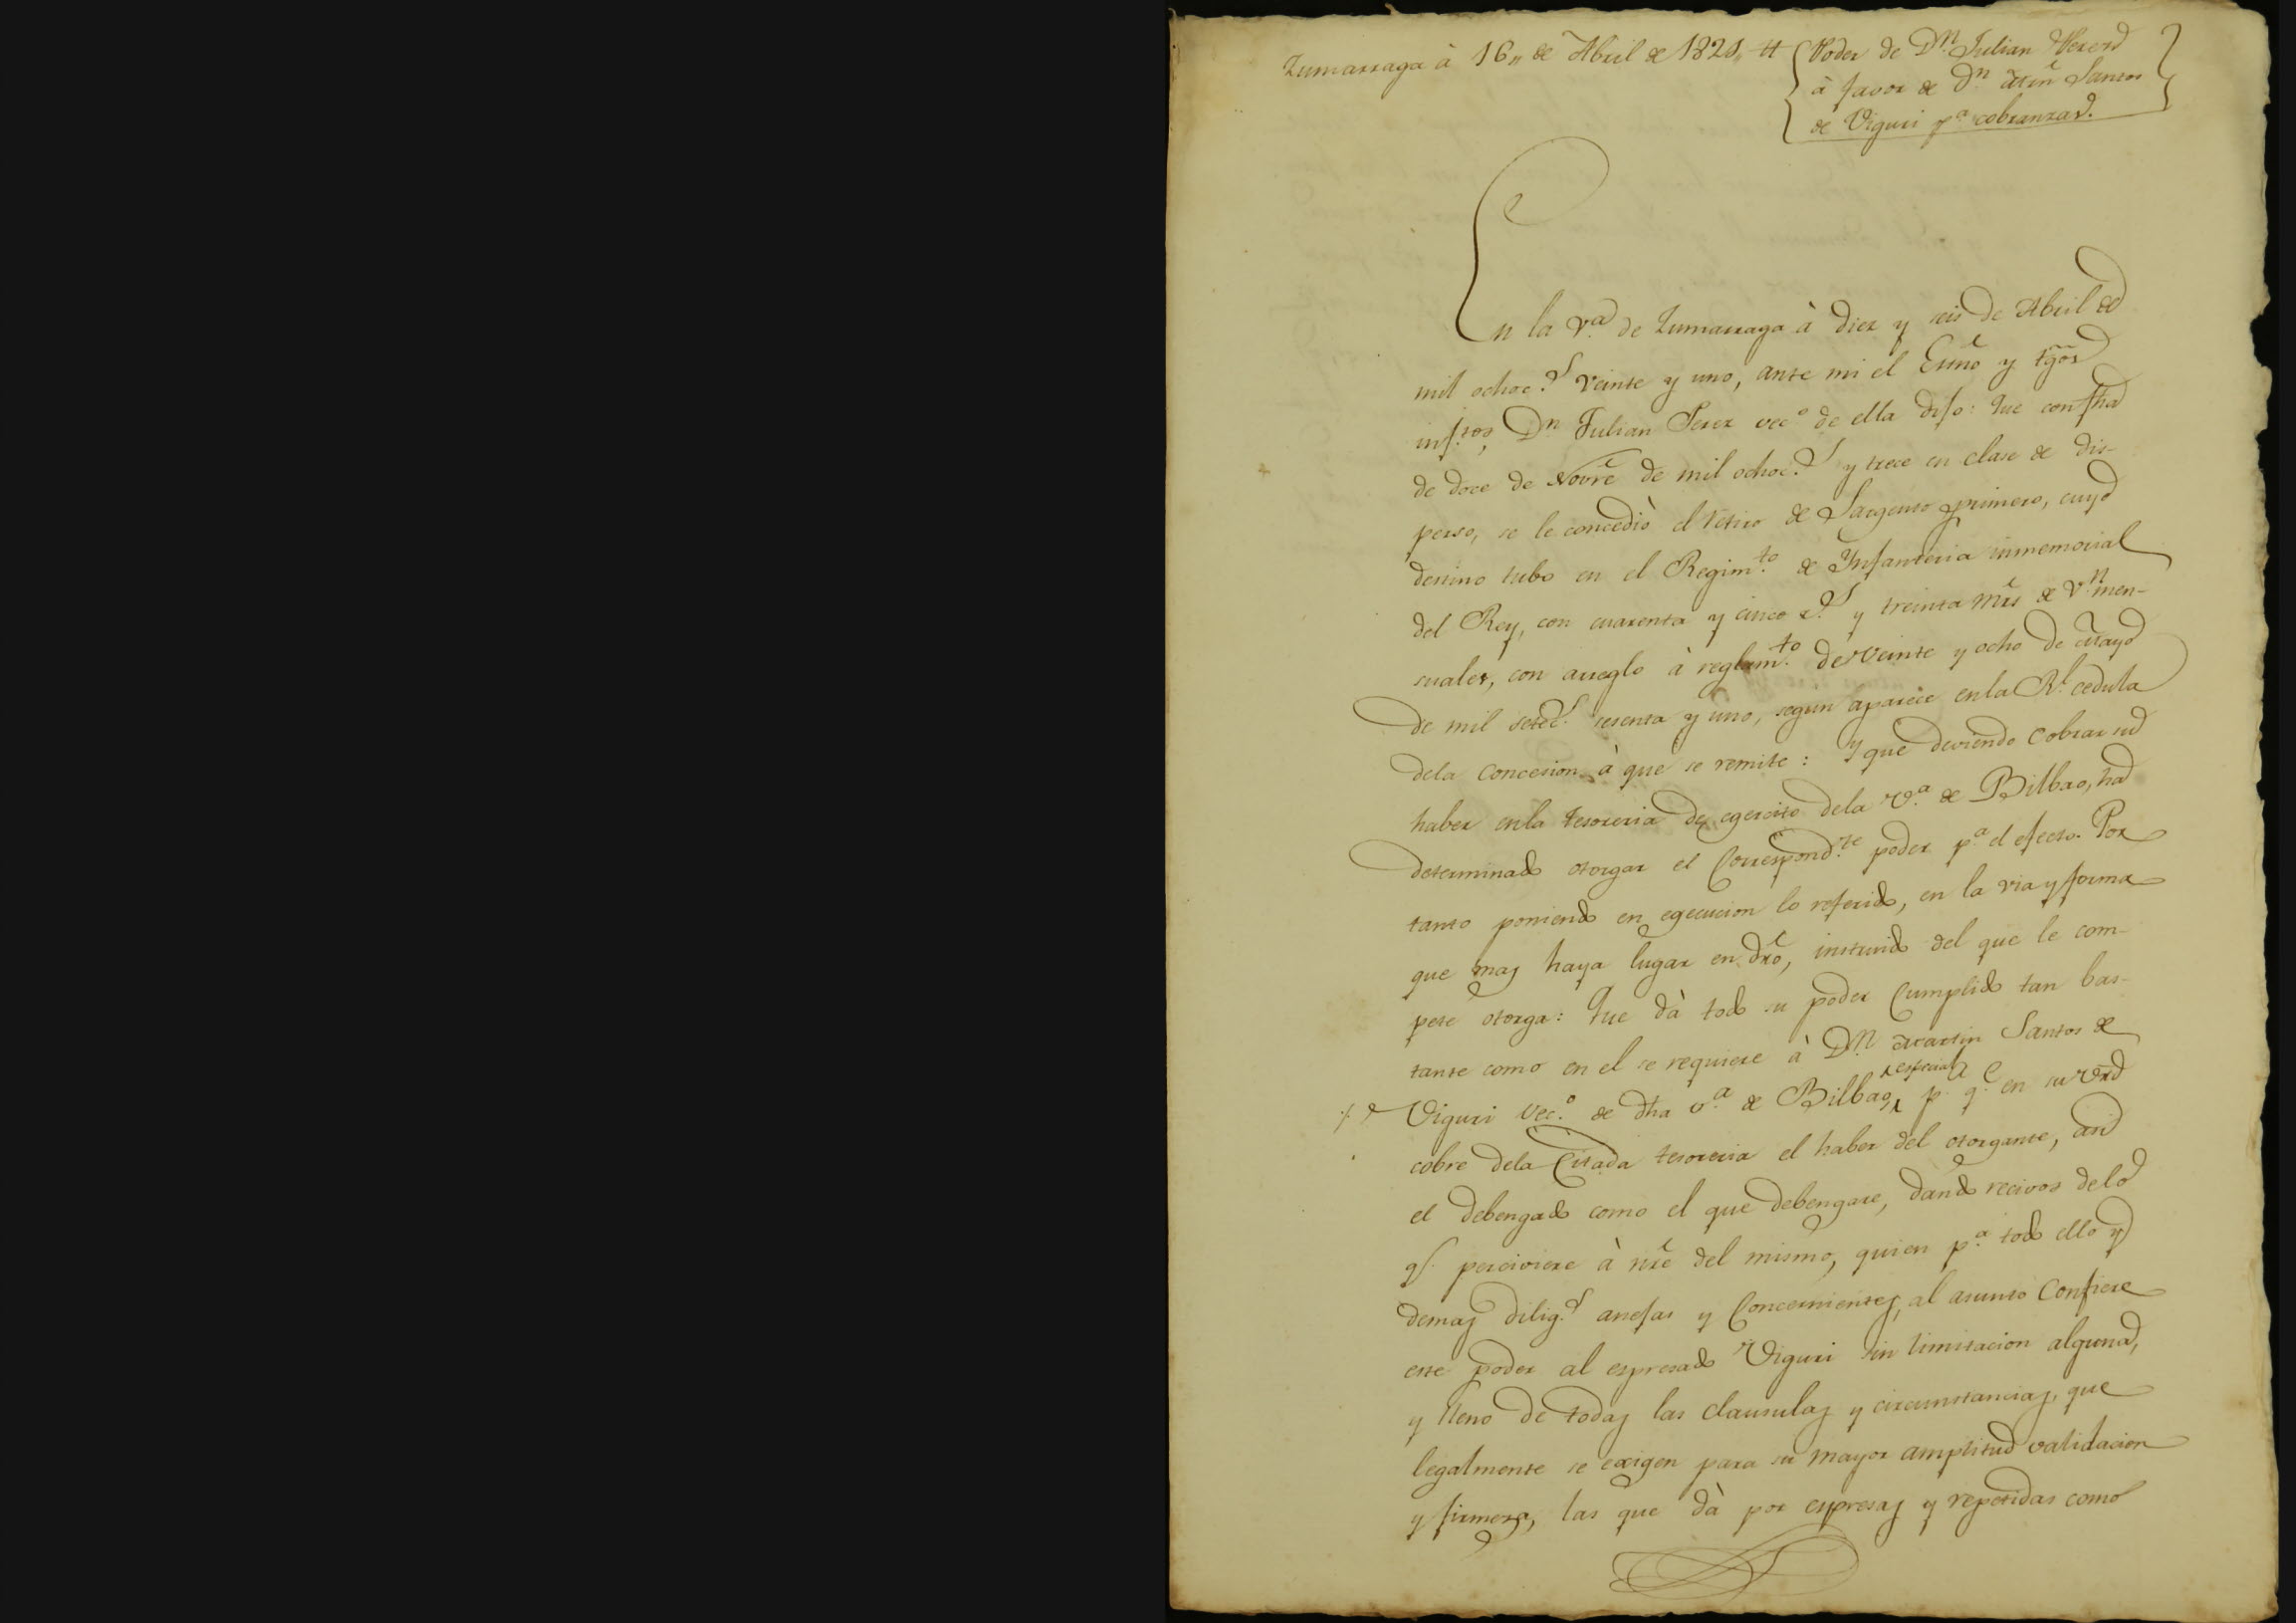 Zumarraga à 16,, de Abril de 1821,, #
Poder de Dn. Julian Perez
à favor de Dn. Mrñ Santos
de Viguri pa. cobranza.
En la va. de Zumarraga à diez y seis de Abril de
mil ochocs. veinte y uno, ante mi el Esnño y tgos
infros, Dn Julian Perez veco de ella dijo: Que con fha
de doce de Novre de mil ochocs. y trece en clase de dis-
perso, se le concediò el retiro de Sargento primero, cuyo
destino tubo en el Regimto. de Infanteria inmemorial
del Rey, con cuarenta y cinco rs. y treinta mrs de vn. men-
suales, con arreglo à reglamto. de veinte y ocho de Mayo
de mil setecs. sesenta y uno, segun aparece en la Rl. cedula
dela concesion à que se remite: Y que deviendo cobrar su
haber enla tesoreria de egercito dela va. de Bilbao, ha
determinado otorgar el correspondte. poder pa. el efecto. Por
tanto poniendo en egecucion lo referido, en la via y forma
que mas haya lugar en dro, instruido del que le com-
pete otorga: Que dà todo su poder cumplido tan bas-
tante como en el se requiere à Dn. Martin Santos de
Viguri veco. de dha va. de Bilbao, especial pa. qe. en su vrd
cobre dela citada tesoreria el haber del otorgante, asi
el debengado como el que debengare, dando recivos delo
q. perciviere à nre del mismo, quien pa. todo ello y
demas diligs. anejas y concernientes, al asunto confiere
este poder al espresado Viguri sin limitacion alguna,
y lleno de todas las clausulas y circunstancias, que
legalmente se exigen para su mayor amplitud validacion
y firmeza, las que dà por espresas y repetidas como